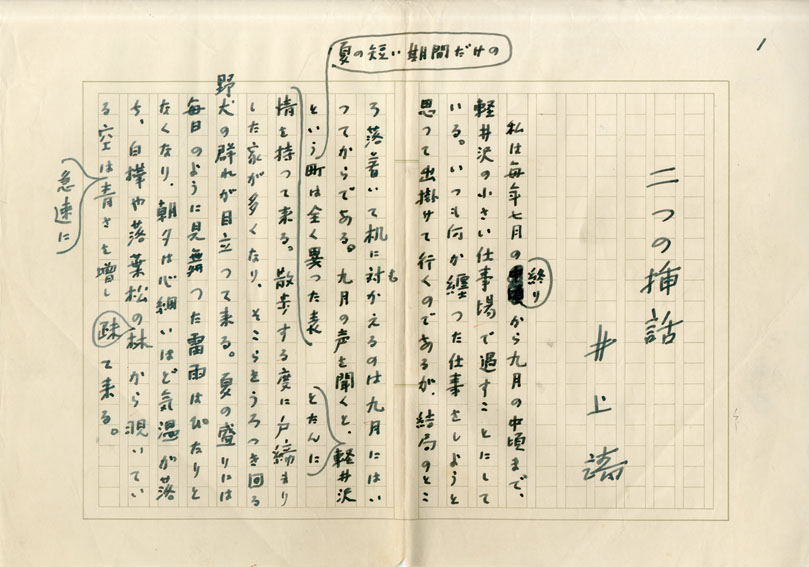 1
二つの挿話
井上靖
私は毎年七月の終りから九月の中頃まで、
軽井沢の小さい仕事場で過すことにして
いる。いつも何か纏つた仕事をしようと
思つて出掛けて行くのであるが、結局のとこ
ろ落着いて机に対かえるのは九月にはい
も
つてからである。九月の声を聞くと、軽井沢
とたんに
夏の短い期間だけの
という町は全く異つた表
情を持つて来る。散歩する度に戸締まり
した家が多くなり、そこらをうろつき回る
野犬の群れが目立つて来る。夏の盛りには
毎日のように見舞つた雷雨はぴたりと
なくなり、朝夕は心細いほど気温が落
ち、白樺や落葉松の林から覗いてい
る空は青さを増し 疎て来る。
急速に